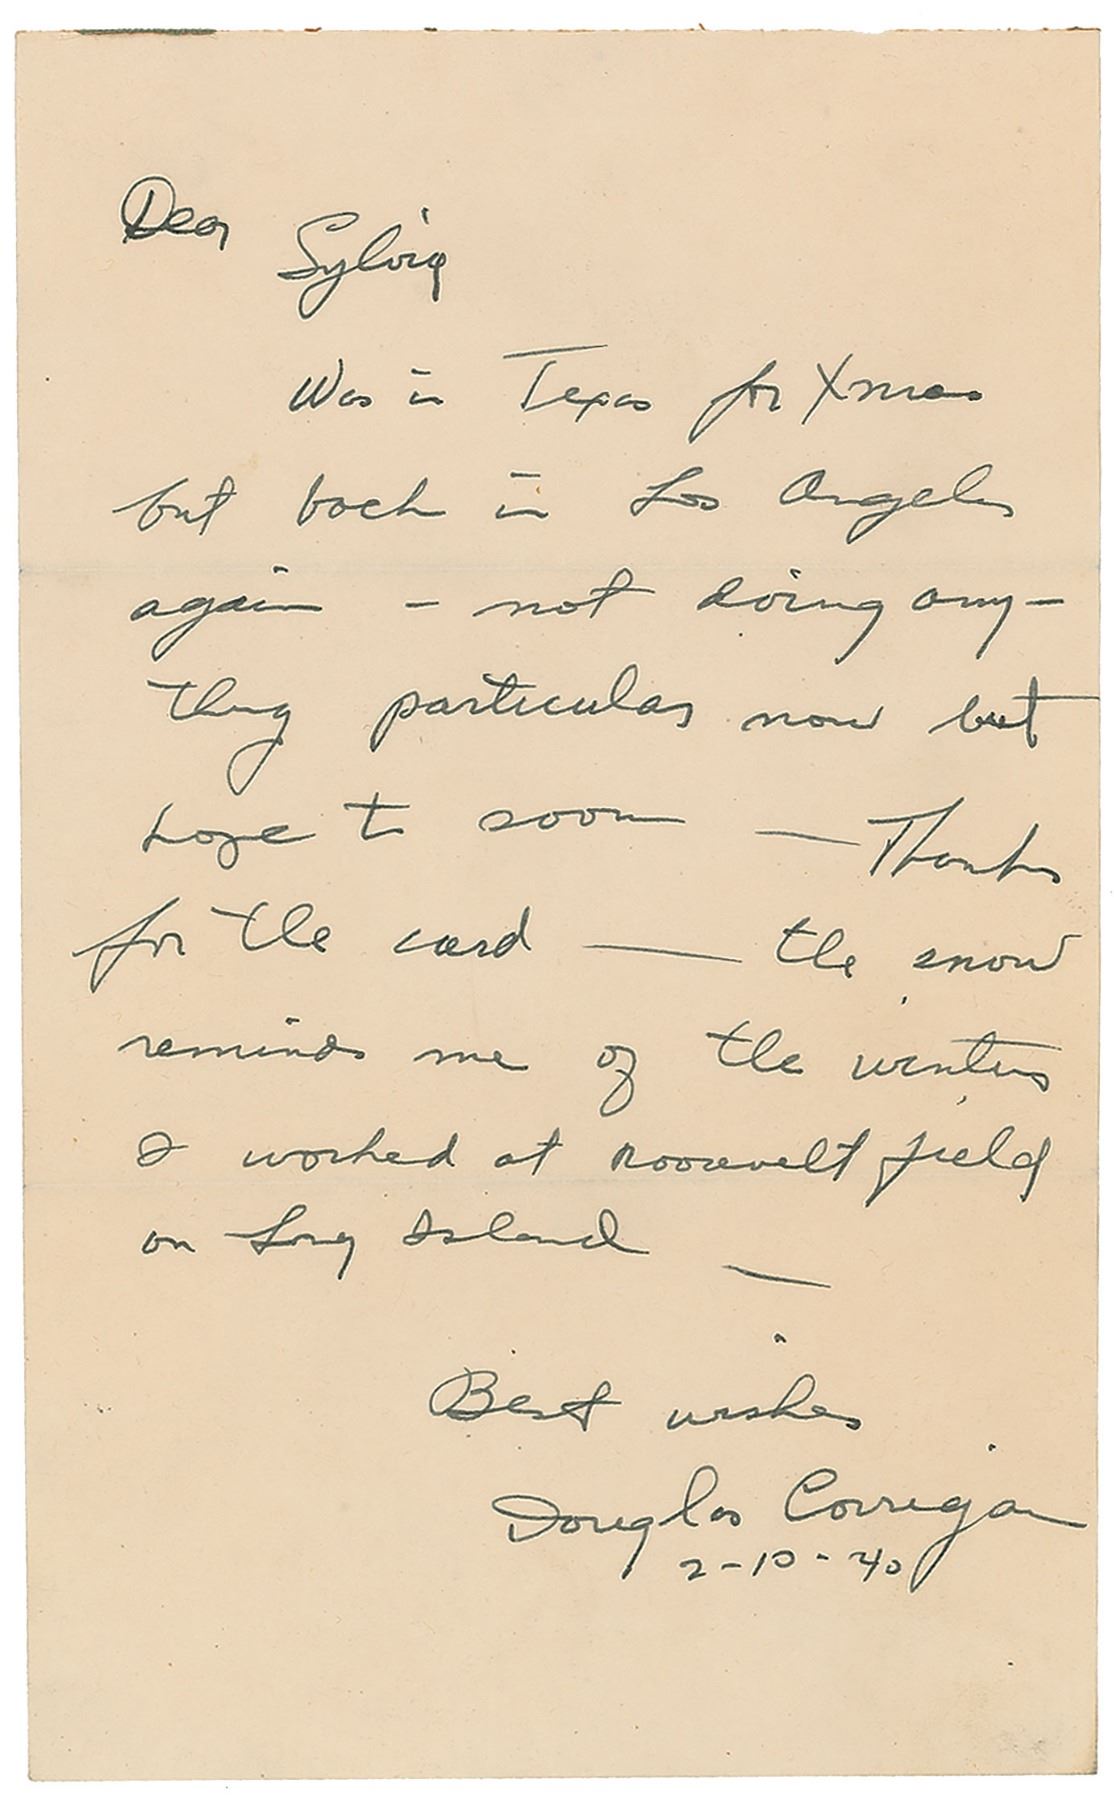 Dear Sylvia
Was in Texas for Xmas
but back in Los Angeles
again - not doing any-
thing particular now but
hope to soon — Thanks
for the card — the snow
reminds me of the winters
I worked at Roosevelt field
on Long Island —
Best wishes
Douglas Corrigan
2-10-40